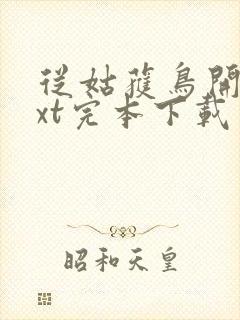 從姑獲鳥開
xt完本下載
昭和天皇